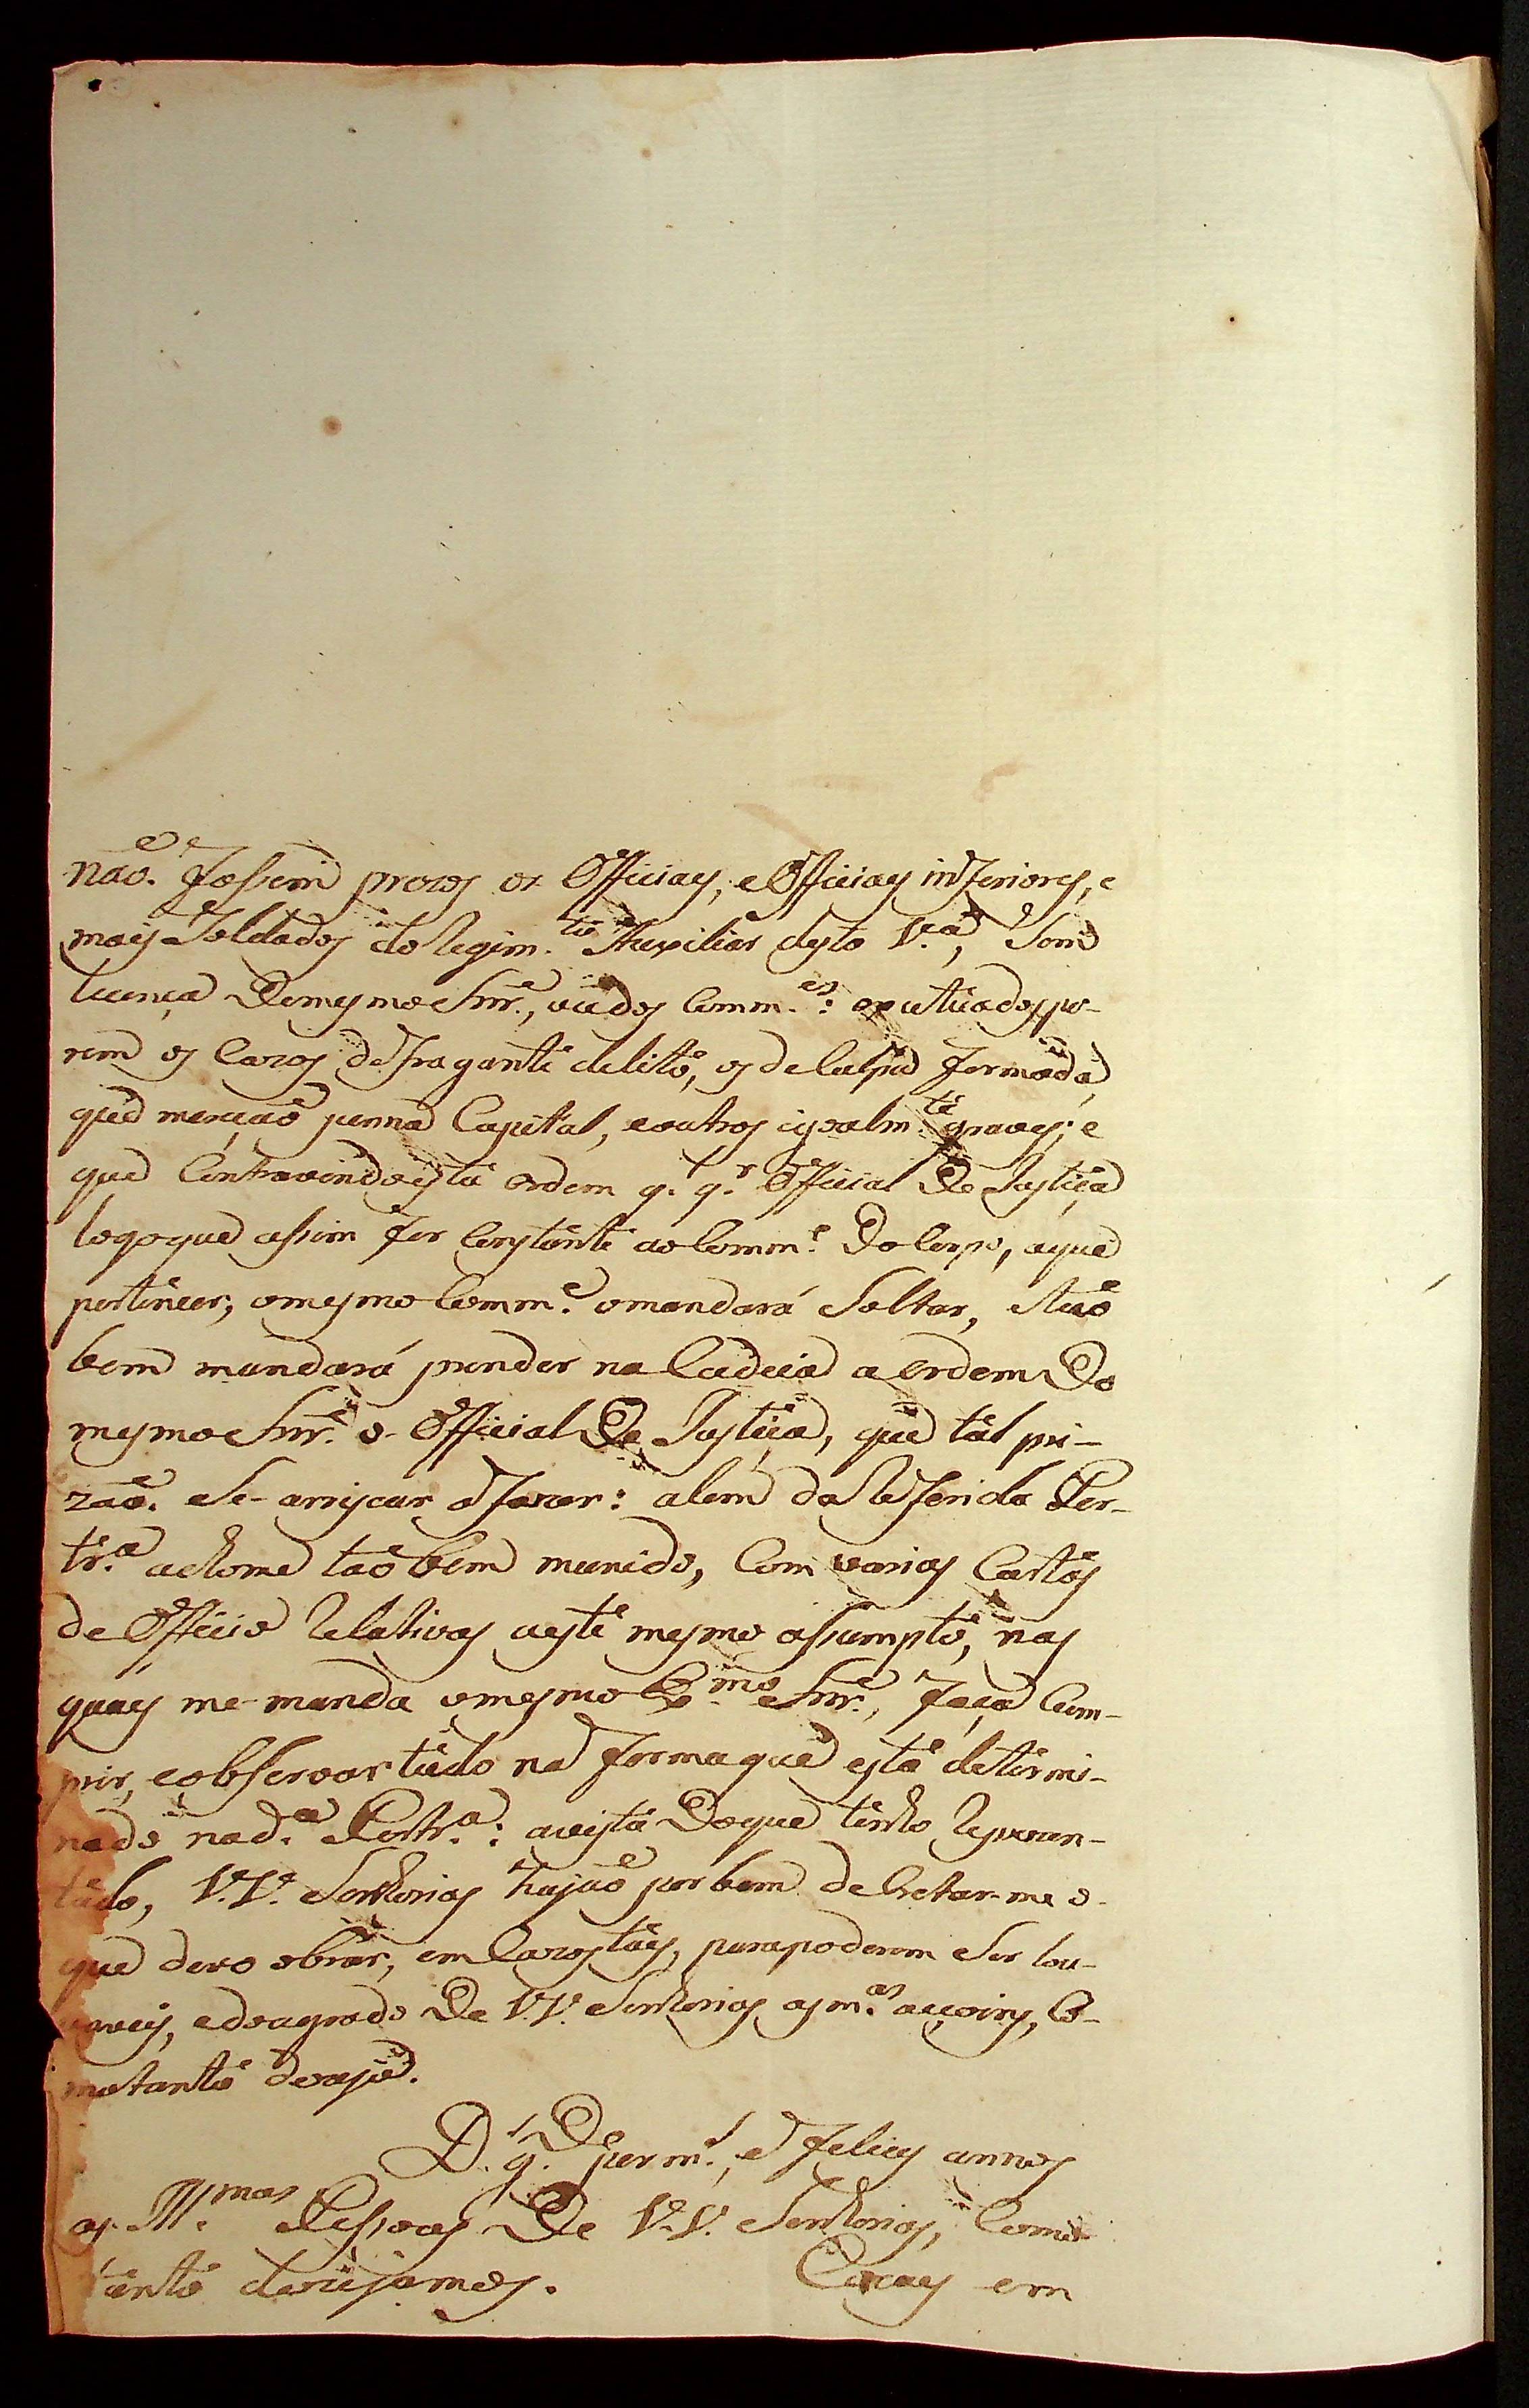 não. fossem prezos os Officiaes, e Officiaes inferiores, e
mais Soldados do Regim.to Auxiliar desta V.a, Sem
licença Do mesmo Snr., ou dos Comm.es: exsetuados po-
rem os Cazos de fragante delito, os de Culpa formada,
que mereção penna Capital, e outros igoalm.te graves; e
que Contravindo esta ordem q.l q.r Official De Justiça
logo que assim for Constante ao Comm.e Do Corpo, a que
pertencer, o mesmo Comm.e o mandará Soltar, e tão
bem mandará prender na Cadeia a ordem Do
mesmo Snr. o Official De Justiça, que tal pri-
zão. Se-arriscar a fazer: alem da Referida Por-
tr.a acho me tão bem munido, Com varias Cartas
de Officio Relativas a este mesmo assumpto, nas
quais me-manda o mesmo Ex.mo Snr., faça Cum-
prir, e observar tudo na forma que está determi-
nado na d.a Portr.a: a vista Do que tenho Reprezen-
tado, V.V. Senhorias hajão por bem decretar-me o-
que devo obrar, em Cazos tais, para poderem Ser lou-
vaveis, e do agrado De V.V. Senhorias as m.as acçoins, Co-
mo tanto dezejo.
D.s g.De por m.s, e felices annos
as Ill.mas Pessoas De V.V. Senhorias, Como
tanto dezejamos. em